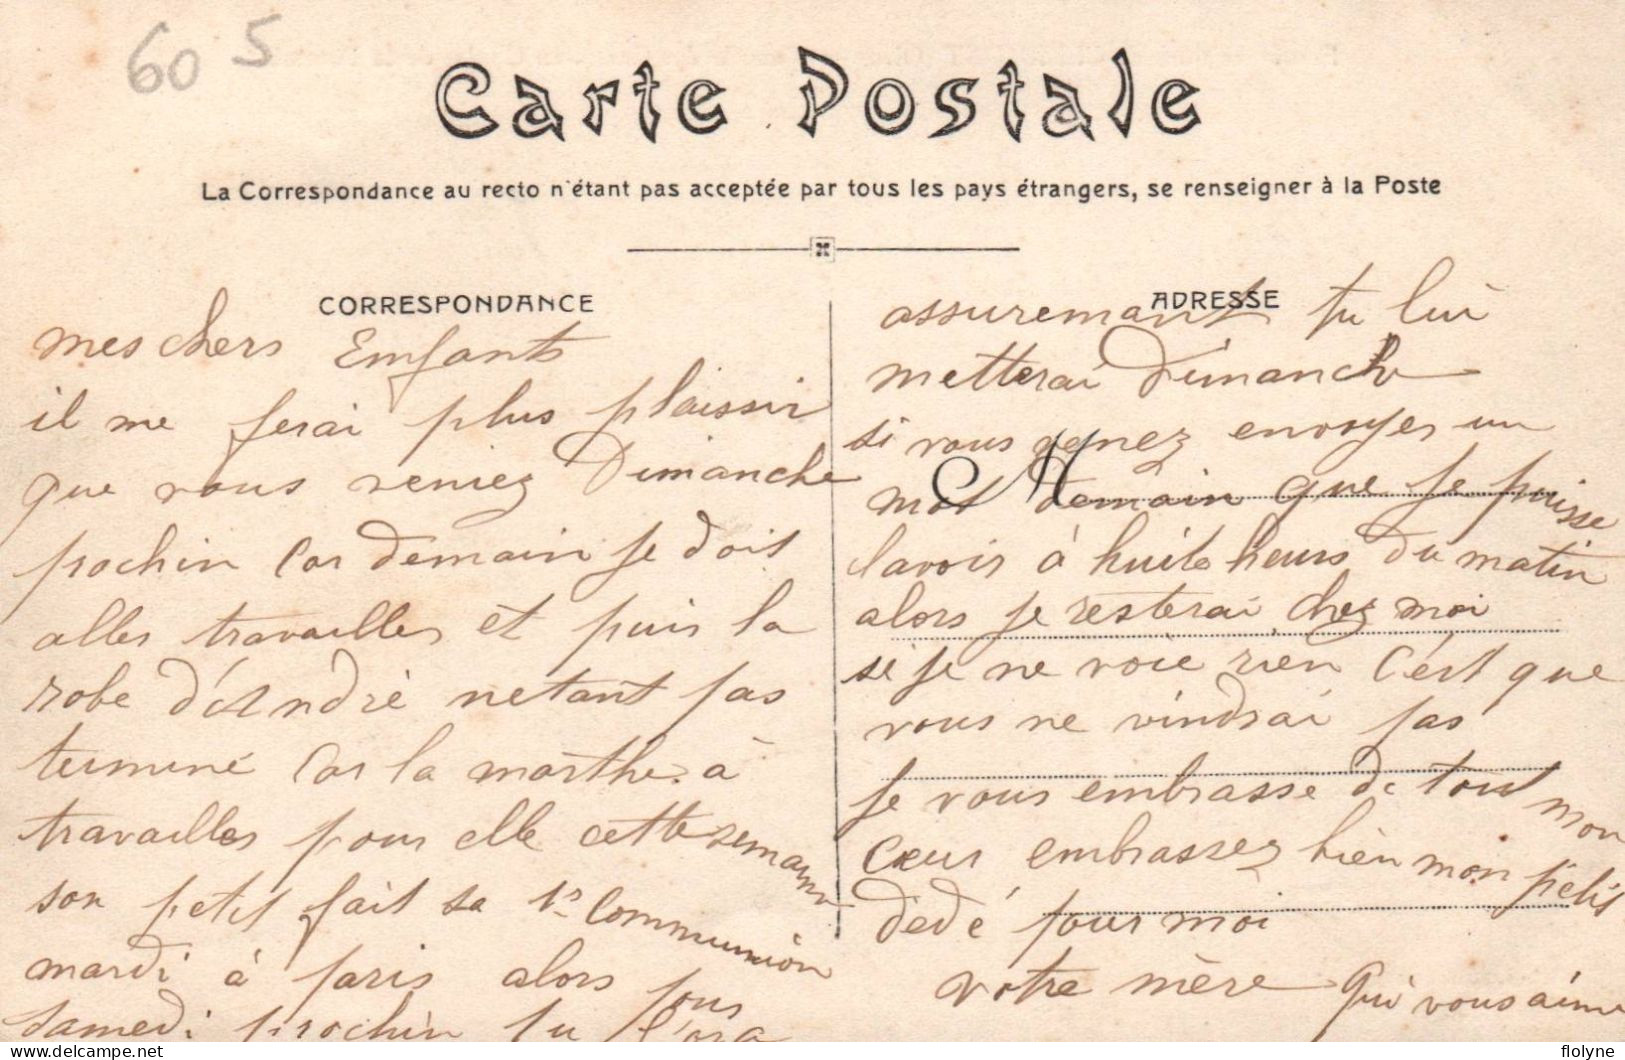 60 5
Carte Postale
La Correspondance au recto n'étant pas acceptée par tous les pays étrangers, se renseigner à la Poste
CORRESPONDANCE
mes chers Enfants
il me ferai plus plaissir
que vous veniez Dimanche
prochin Car demain je doit
aller travailler et puis la
robe d'André netant pas
terminé Car la marthe à
travailler pour elle cette semaine
son petit fait sa 1re Communion
mardi à paris alors pour
samedi prochin tu l'ora
ADRESSE
assuremant tu lui
metterai Dimanche
si vous venez envoyer un
M
mot demain que je puisse
lavoir à huite heurs du matin
alors je resterai chez moi
si je ne voie rien C'ést que
vous ne vindrai pas
je vous embrasse de tout mon
Cœur embrassez bien mon petit
dedé pour moi
votre mère qui vous aime
delcampe.net
flolyne